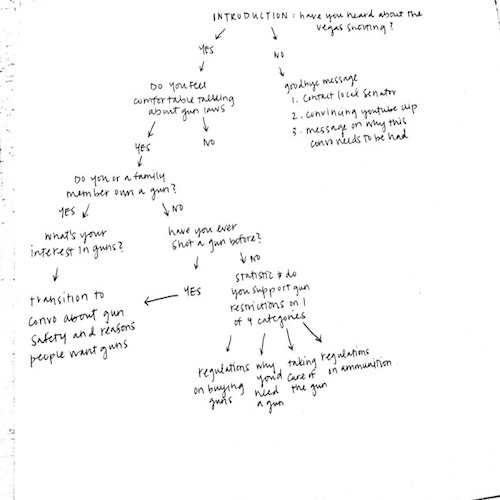 INTRODUCTION: have you heard about the
vegas shooting?
YES
NO
DO YOU FEEL
comfortable talking
about gun laws
goodbye message
1. Contact local senator
2. convincing youtube clip
3. message on why this
convo needs to be had
YES
NO
DO YOU or a family
member own a gun?
YES
NO
what's your
interest in guns?
have you ever
shot a gun before?
YES
NO
transition to
convo about gun
safety and reasons
people want guns
statistic & do
you support gun
restrictions on 1
of 4 categories
regulations
on buying
guns
why
you'd
need
a gun
taking
care of
the gun
regulations
on ammunition